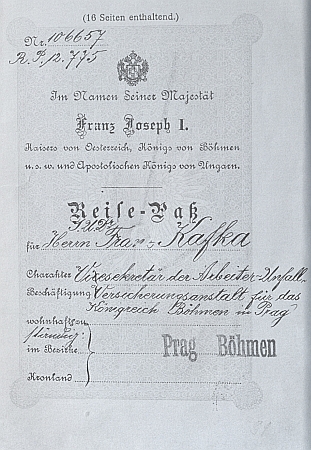 (16 Seiten enthaltend.)
Nr. 106657
R. P. 12.775
Im Namen Seiner Majestät
Franz Joseph I.
Kaisers von Oesterreich, Königs von Böhmen
u. s. w. und Apostolischen Königs von Ungarn.
Reise-Paß
J.U.Dr.
für Herrn Franz Kafka
Charakter Vizesekretär der Arbeiter-Unfall-
Beschäftigung Versicherungsanstalt für das
Königreich Böhmen in Prag
wohnhaft
im Bezirke
Prag Böhmen
Kronland